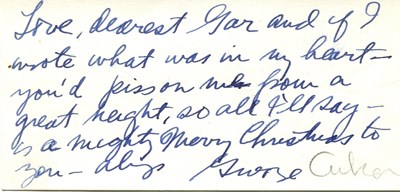 Love, dearest Gar and if I
wrote what was in my heart —
you'd piss on me from a
great height, so all I'll say —
is a mighty Merry Christmas to
you — always George Cukor